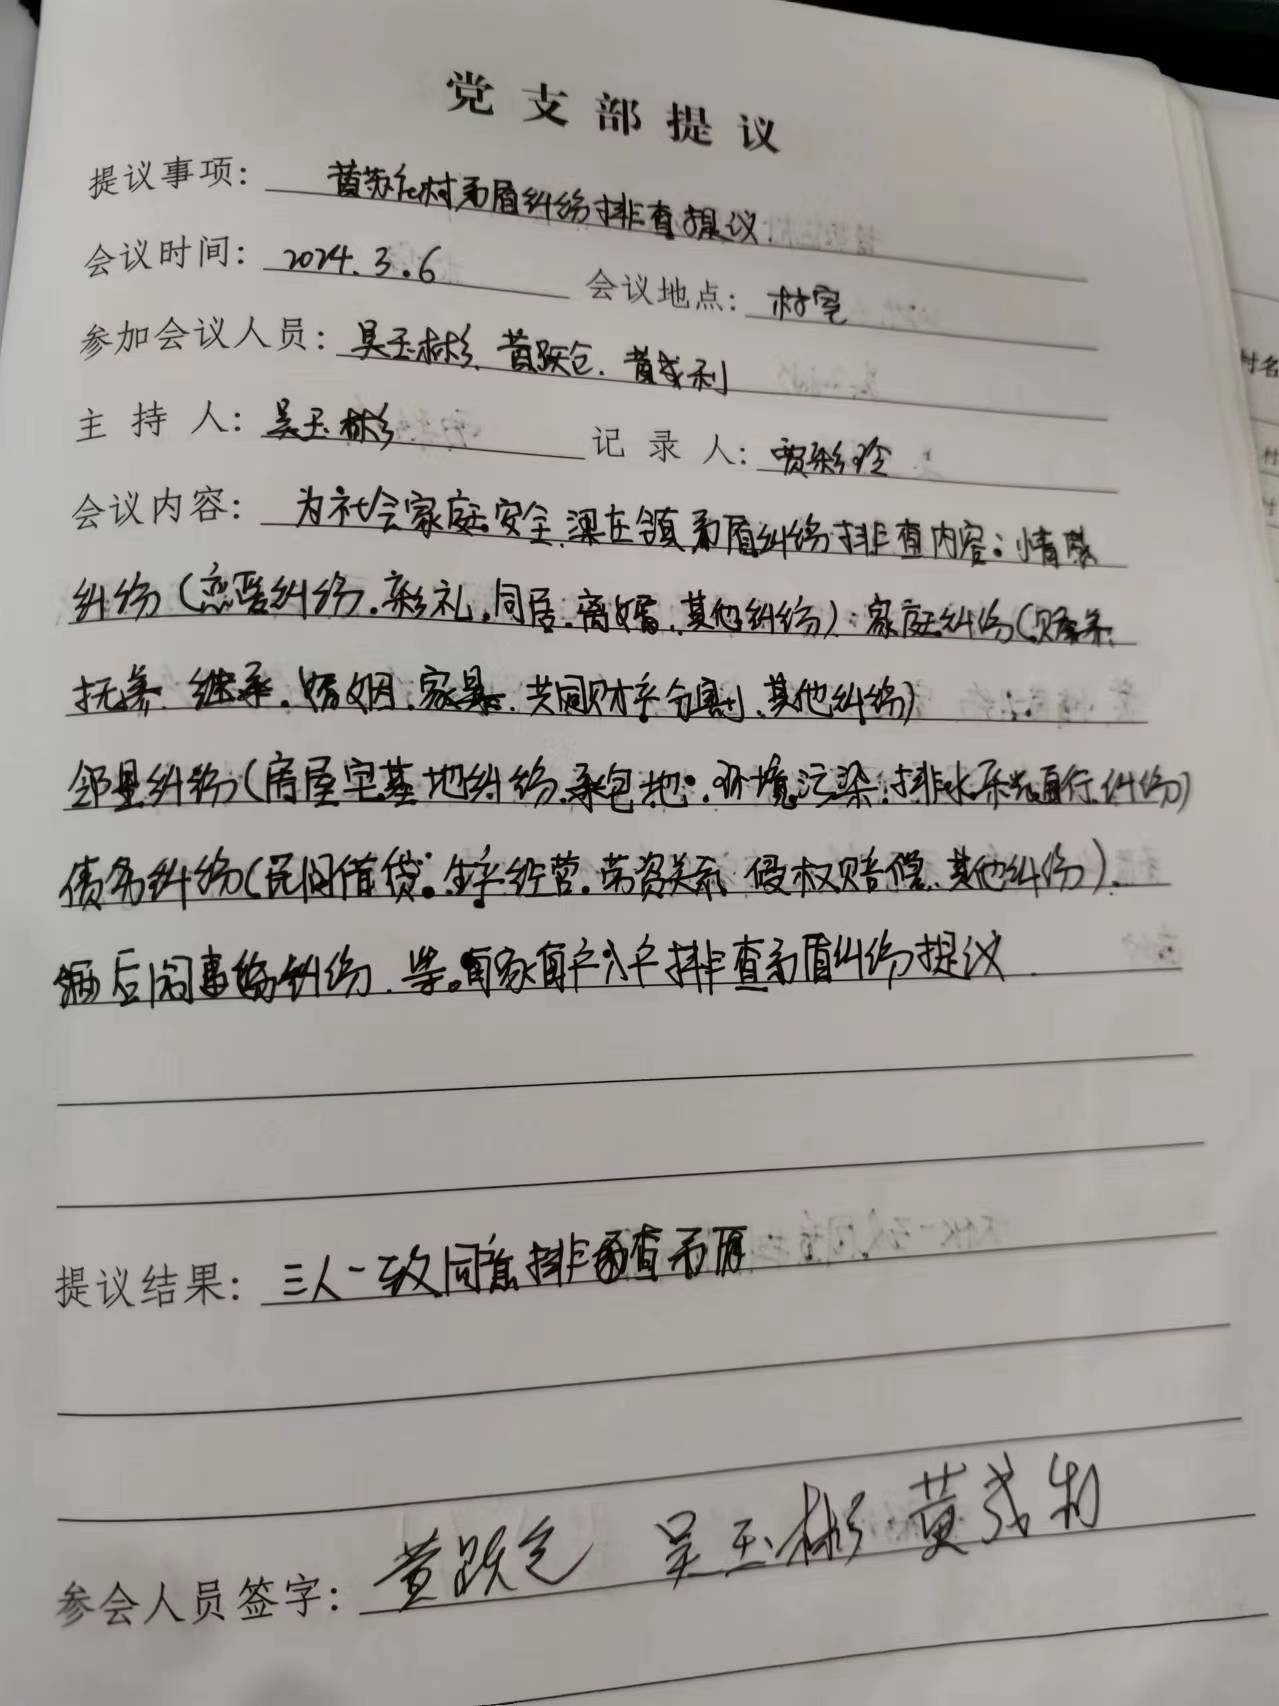 党支部提议
提议事项: 黄苏仁村矛盾纠纷排查提议
会议时间: 2024.3.6 会议地点: 村室
参加会议人员: 吴玉彬、黄跃仓、黄成利
主持人: 吴玉彬 记录人: 贾彩玲
会议内容: 为社会家庭安全,梁庄镇矛盾纠纷排查内容:情感
纠纷(恋爱纠纷.彩礼.同居.离婚.其他纠纷):家庭纠纷(赡养.
抚养.继承.婚姻.家暴.共同财产分割、其他纠纷)
邻里纠纷(房屋宅基地纠纷.承包地.环境污染.排水采光通行纠纷)
债务纠纷(民间借贷.生产经营.劳资关系 侵权赔偿.其他纠纷)
酒后闹事纠纷.等。每家每户排查矛盾纠纷提议
提议结果: 三人一致同意排查矛盾
参会人员签字: 黄跃仓 吴玉彬 黄成利